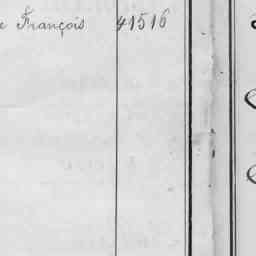 François 41516